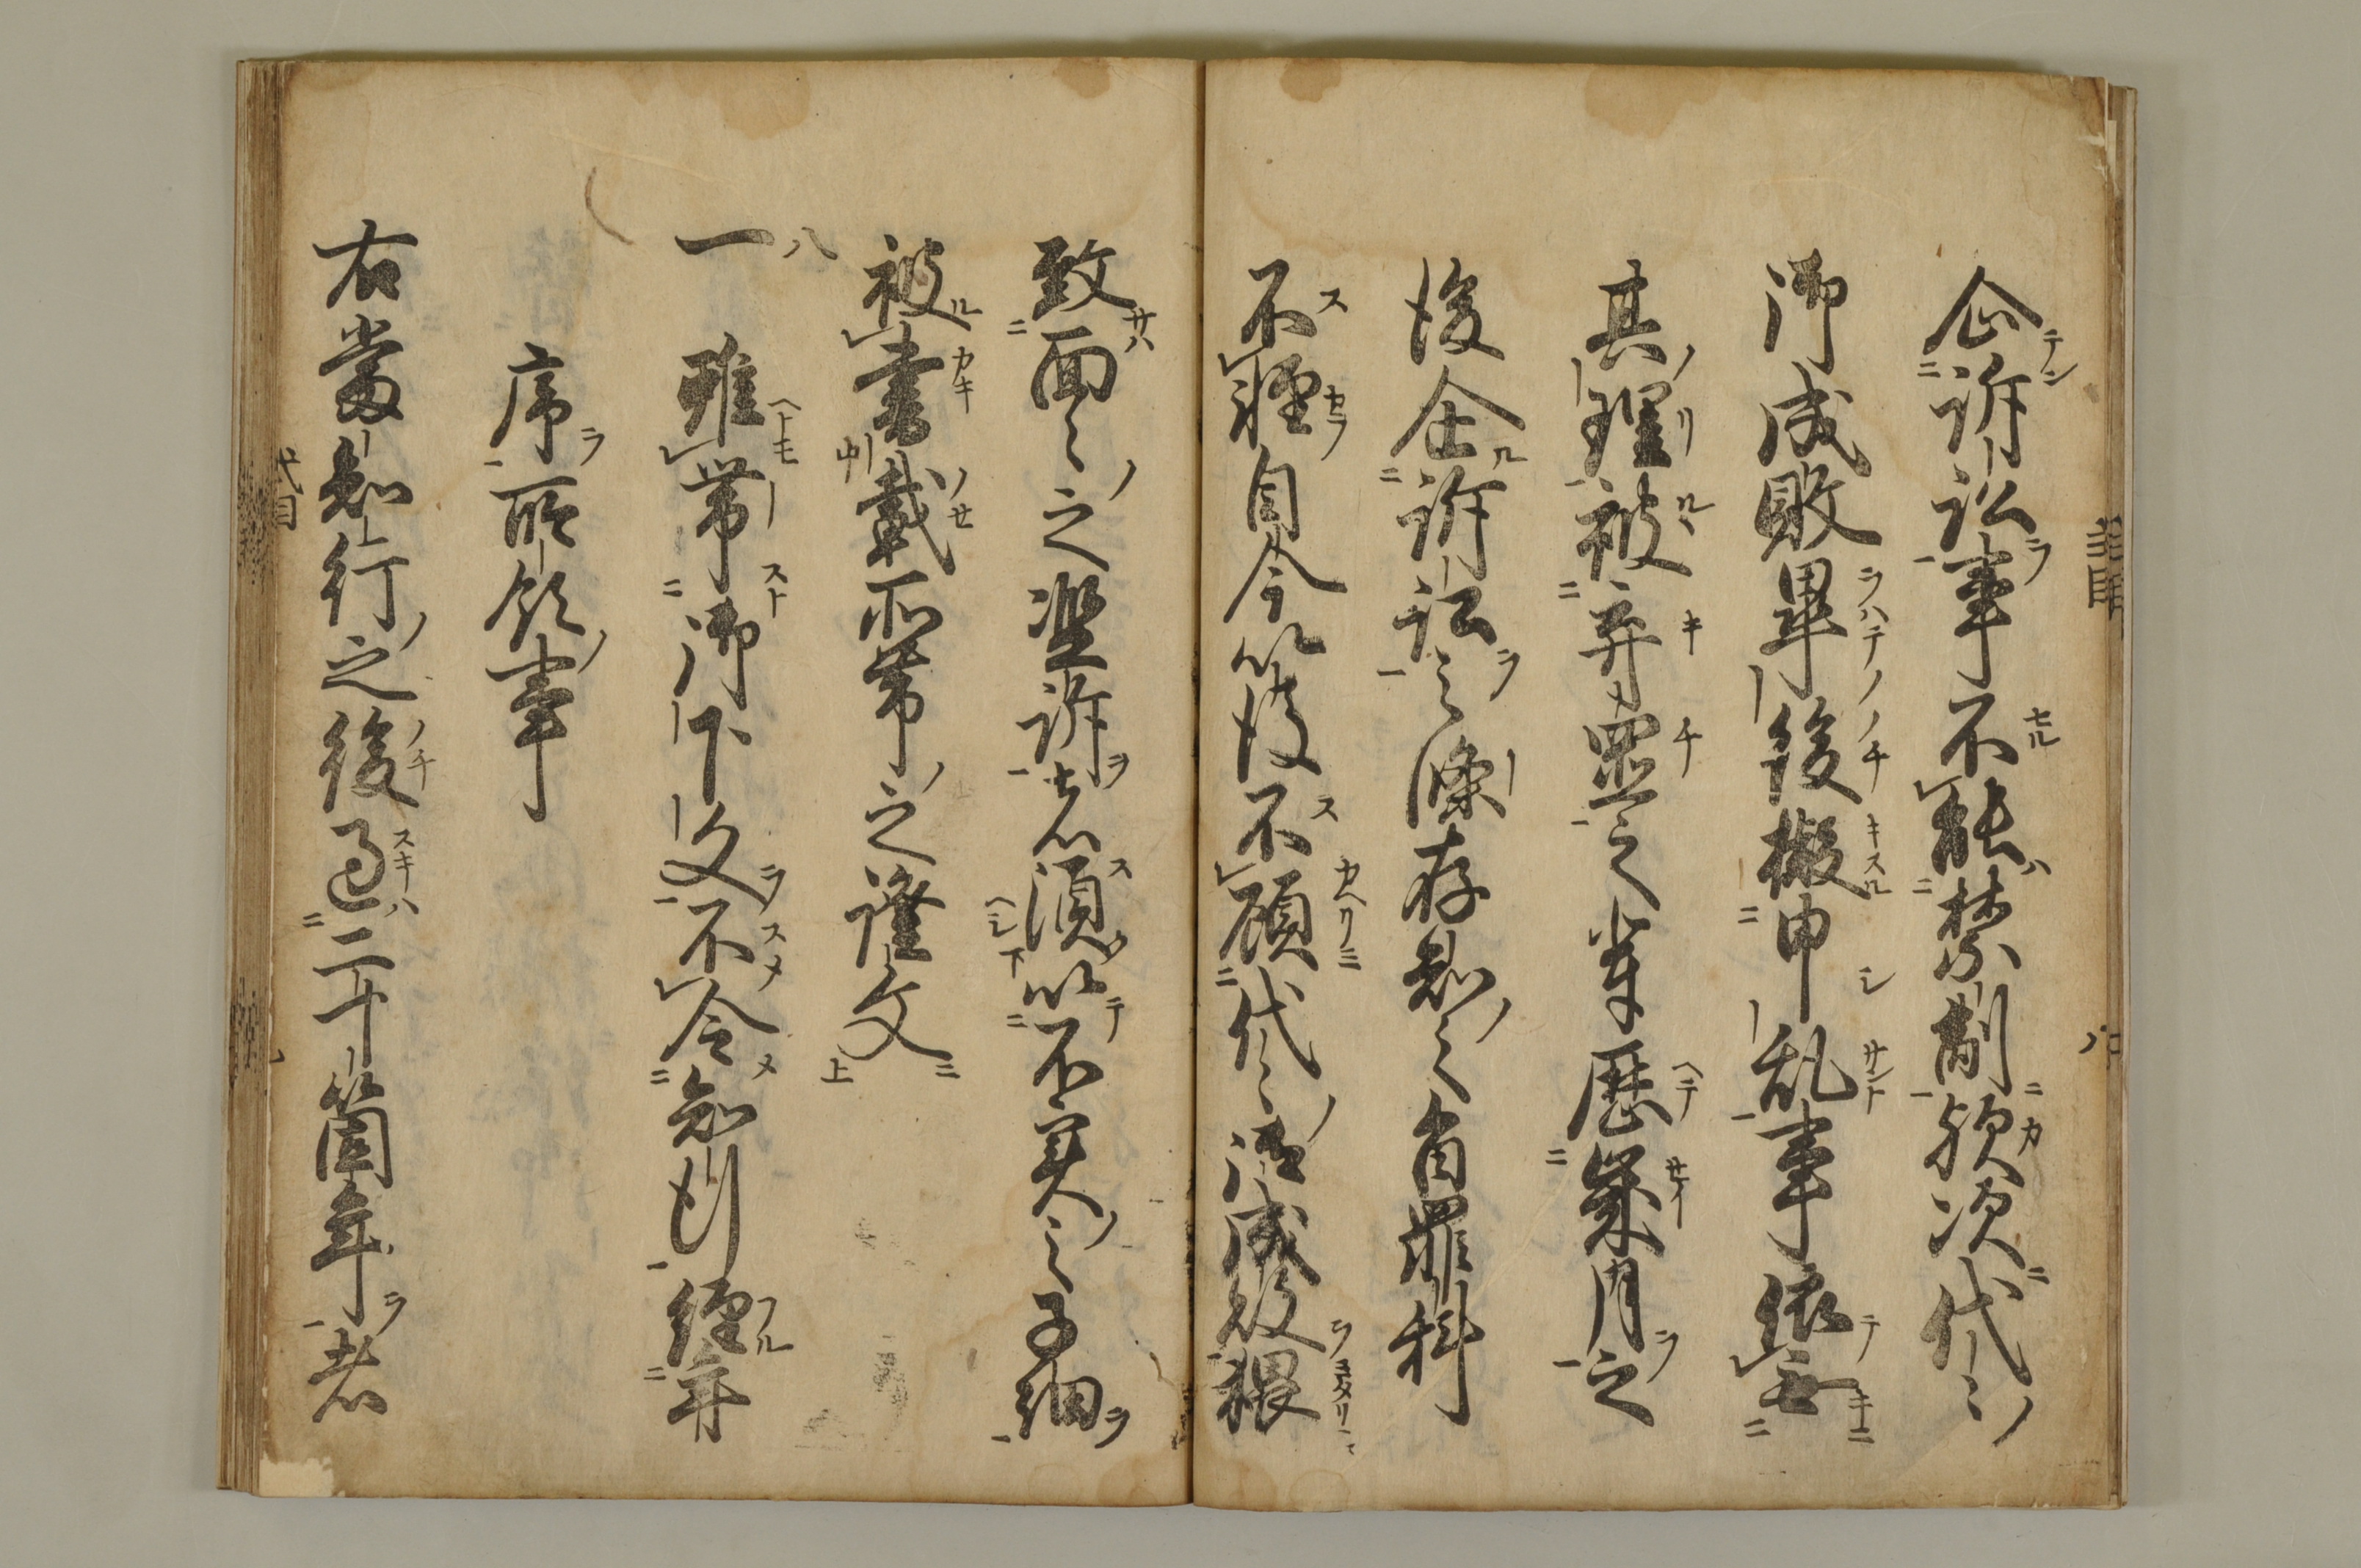 企訴訟事不能禁制歟次代々
御成敗畢後擬申乱事依無
其理被弃置之輩歴歳月之
後企訴訟之條存知之旨罪科
不軽自今以後不顧代々御成敗猥
致面々之濫訴者須以不実之子細
被書載所帯之證文
八
一 雖帯御下文不令知行経年
序所領事
右當知行之後過二十箇年者